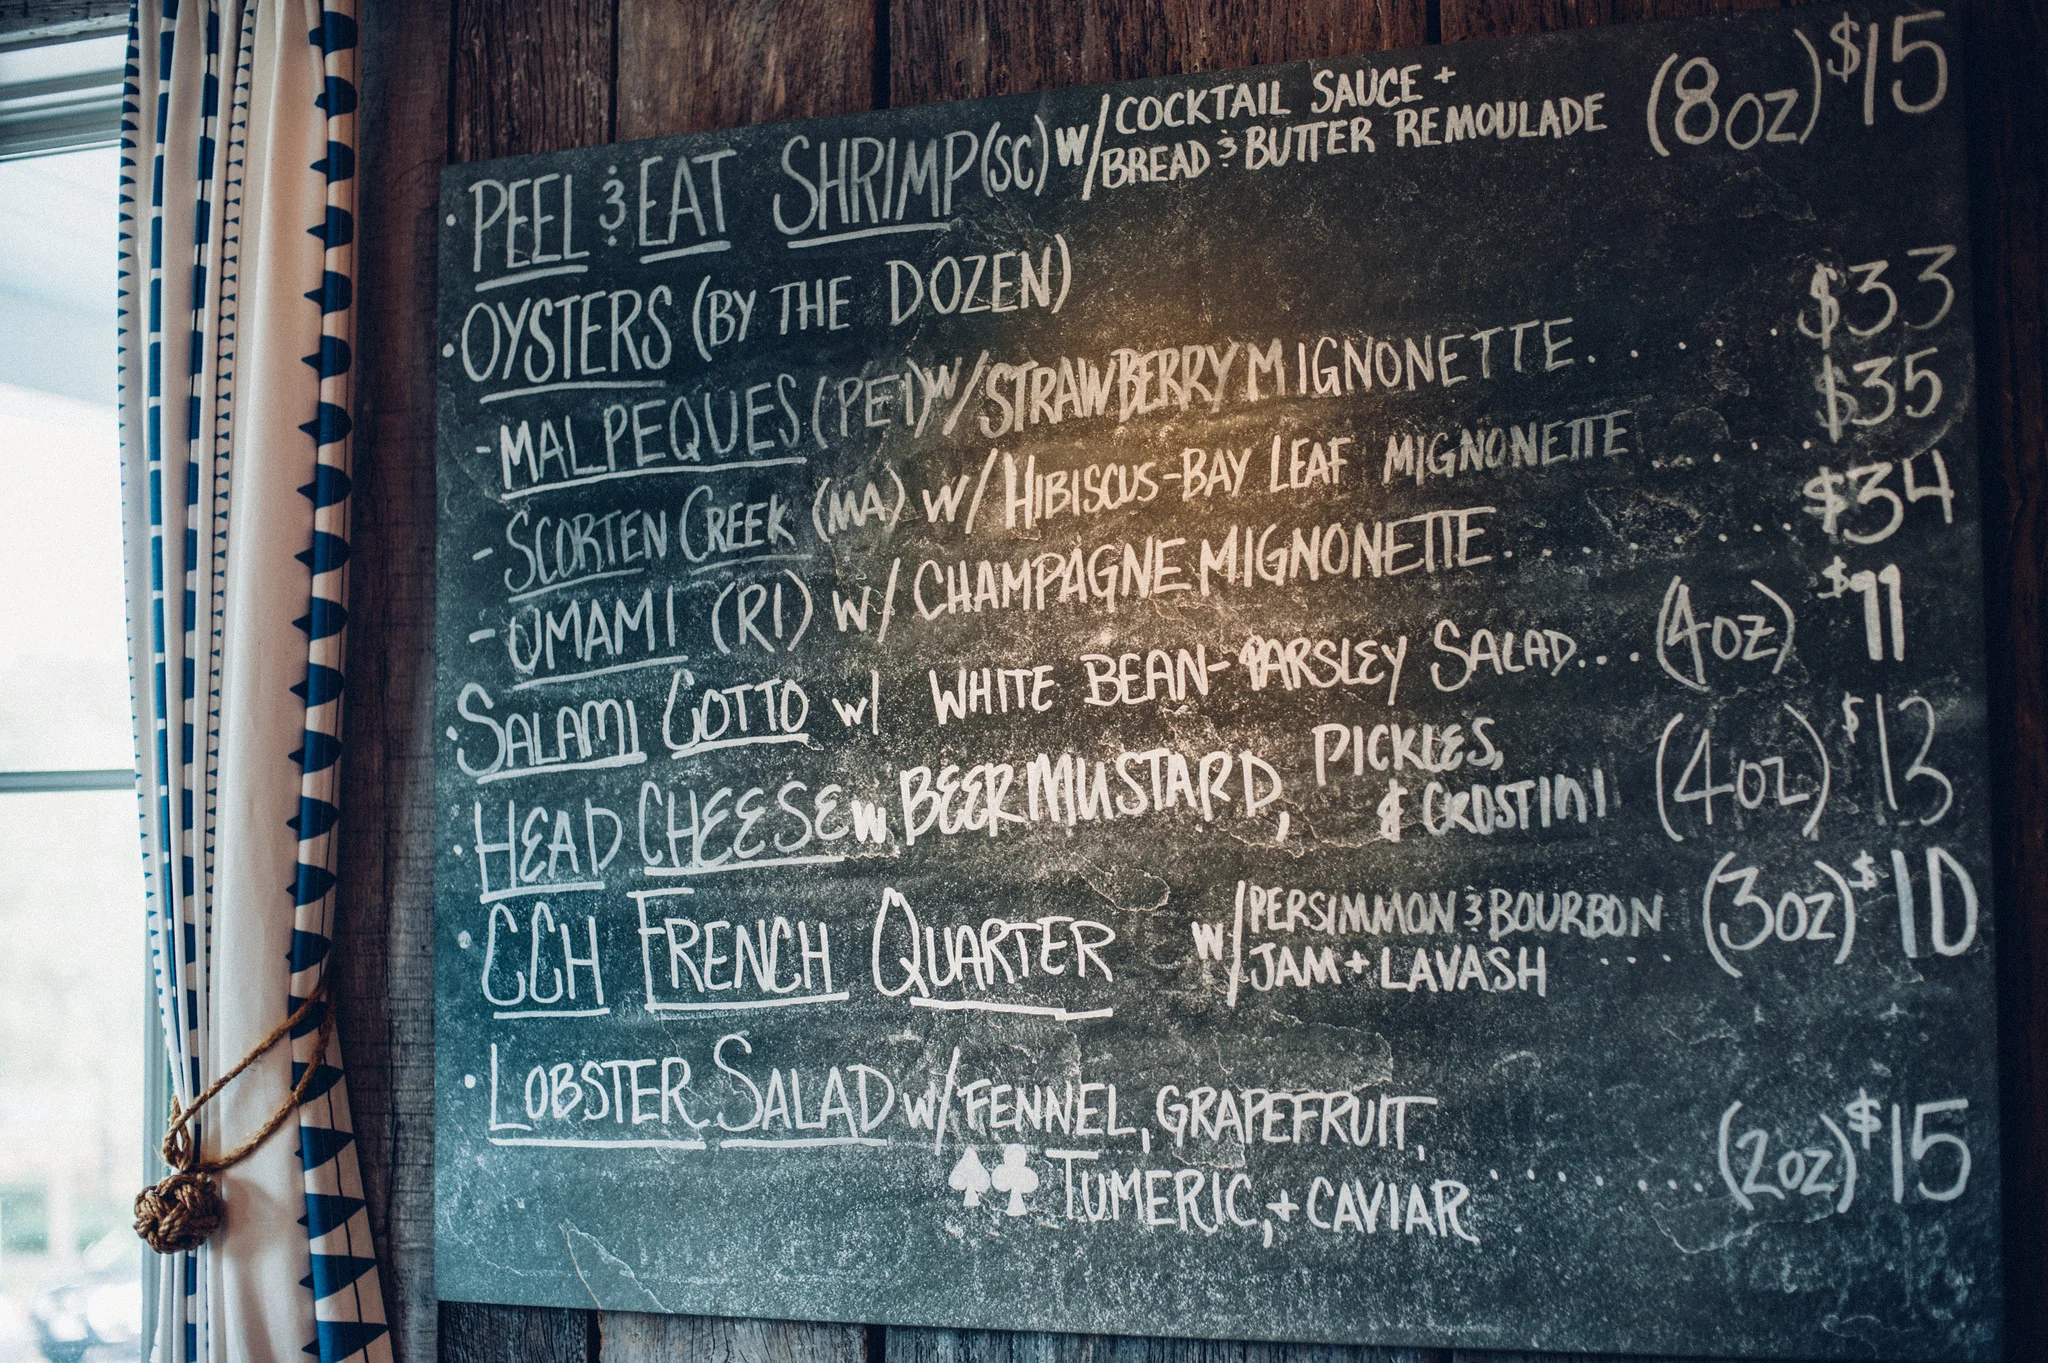 • PEEL & EAT SHRIMP (SC) W/ COCKTAIL SAUCE +
BREAD & BUTTER REMOULADE (8OZ) $15
• OYSTERS (BY THE DOZEN)
- MALPEQUES (PEI) W/ STRAWBERRY MIGNONETTE. . . . . . $33
- SCORTEN CREEK (MA) W/ HIBISCUS-BAY LEAF MIGNONETTE . . . . . $35
- UMAMI (RI) W/ CHAMPAGNE MIGNONETTE. . . . . . . . $34
• SALAMI COTTO W/ WHITE BEAN-PARSLEY SALAD. . . . (4OZ) $11
• HEAD CHEESE W. BEER MUSTARD, PICKLES,
& CROSTINI (4OZ) $13
• CCH FRENCH QUARTER W/ PERSIMMON & BOURBON
JAM + LAVASH . . . . (3OZ) $10
• LOBSTER SALAD W/ FENNEL, GRAPEFRUIT,
♠♣ TUMERIC, + CAVIAR . . . . . . . . (2OZ) $15